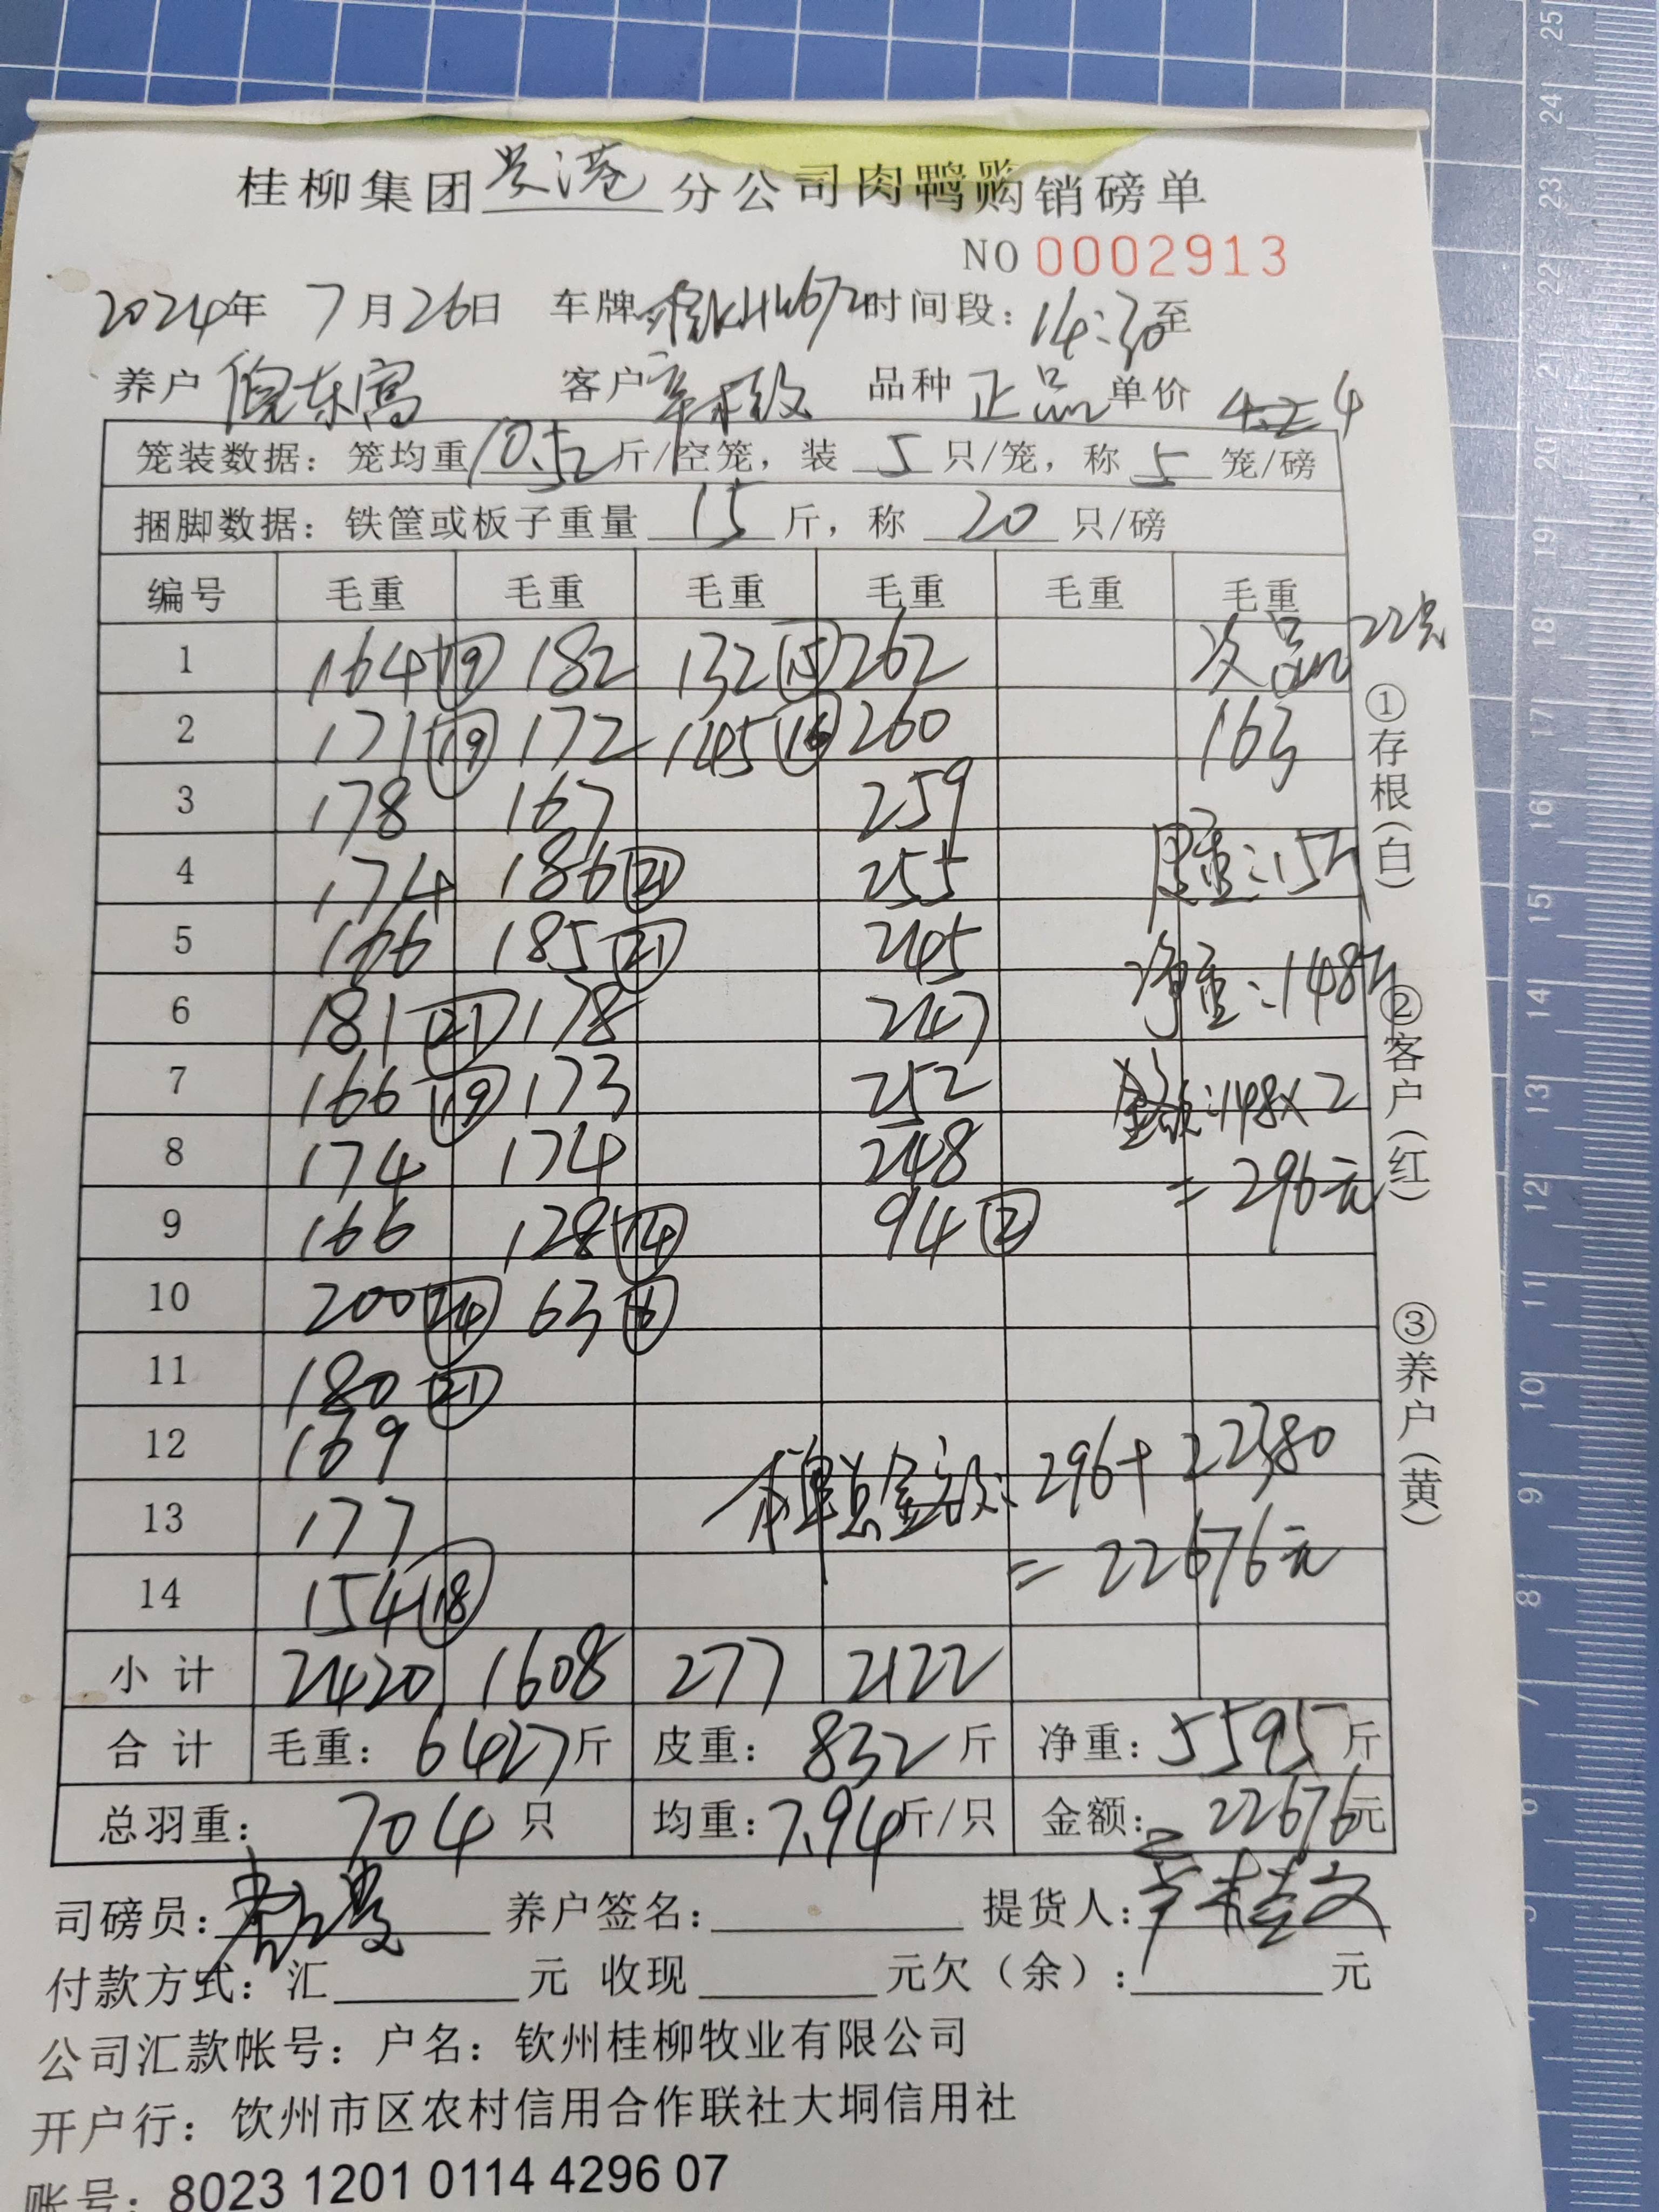 桂柳集团 分公司肉鸭购销磅单
NO 0002913
2024年 7月26日 车牌 时间段：14:30至
养户 倪东 客户 品种 正品 单价 4
笼装数据：笼均重 10.52 斤/空笼，装 5 只/笼，称 5 笼/磅
捆脚数据：铁筐或板子重量 15 斤，称 20 只/磅
编号 毛重 毛重 毛重 毛重 毛重 毛重
1 164 ⑲ 182 132 ⑮ 262 次品 22只
2 171 ⑲ 172 145 ⑯ 260 163
3 178 167 259
4 174 186 ㉑ 255 皮重：15斤
5 166 185 ㉑ 245
6 181 ㉑ 178 247 净重：148斤
7 166 ⑲ 173 252 金额：148×2
8 174 174 248 =296元
9 166 128 ⑭ 94 ②
10 200 ㉔ 63 ⑥
11 180 ㉑
12 169 本单总金额：296+22380
13 177
14 154 ⑱ =22676元
小计 2420 1608 277 2122
合计 毛重：6427斤 皮重：832斤 净重：5595斤
总羽重：704只 均重：7.94斤/只 金额：22676元
司磅员： 养户签名： 提货人：辛桂文
付款方式：汇 元 收现 元欠（余）： 元
公司汇款帐号：户名：钦州桂柳牧业有限公司
开户行：饮州市区农村信用合作联社大垌信用社
账号：8023 1201 0114 4296 07
①存根（白）
②客户（红）
③养户（黄）
25
24
23
22
21
20
19
18
17
16
15
14
13
12
11
10
9
8
7
6
5